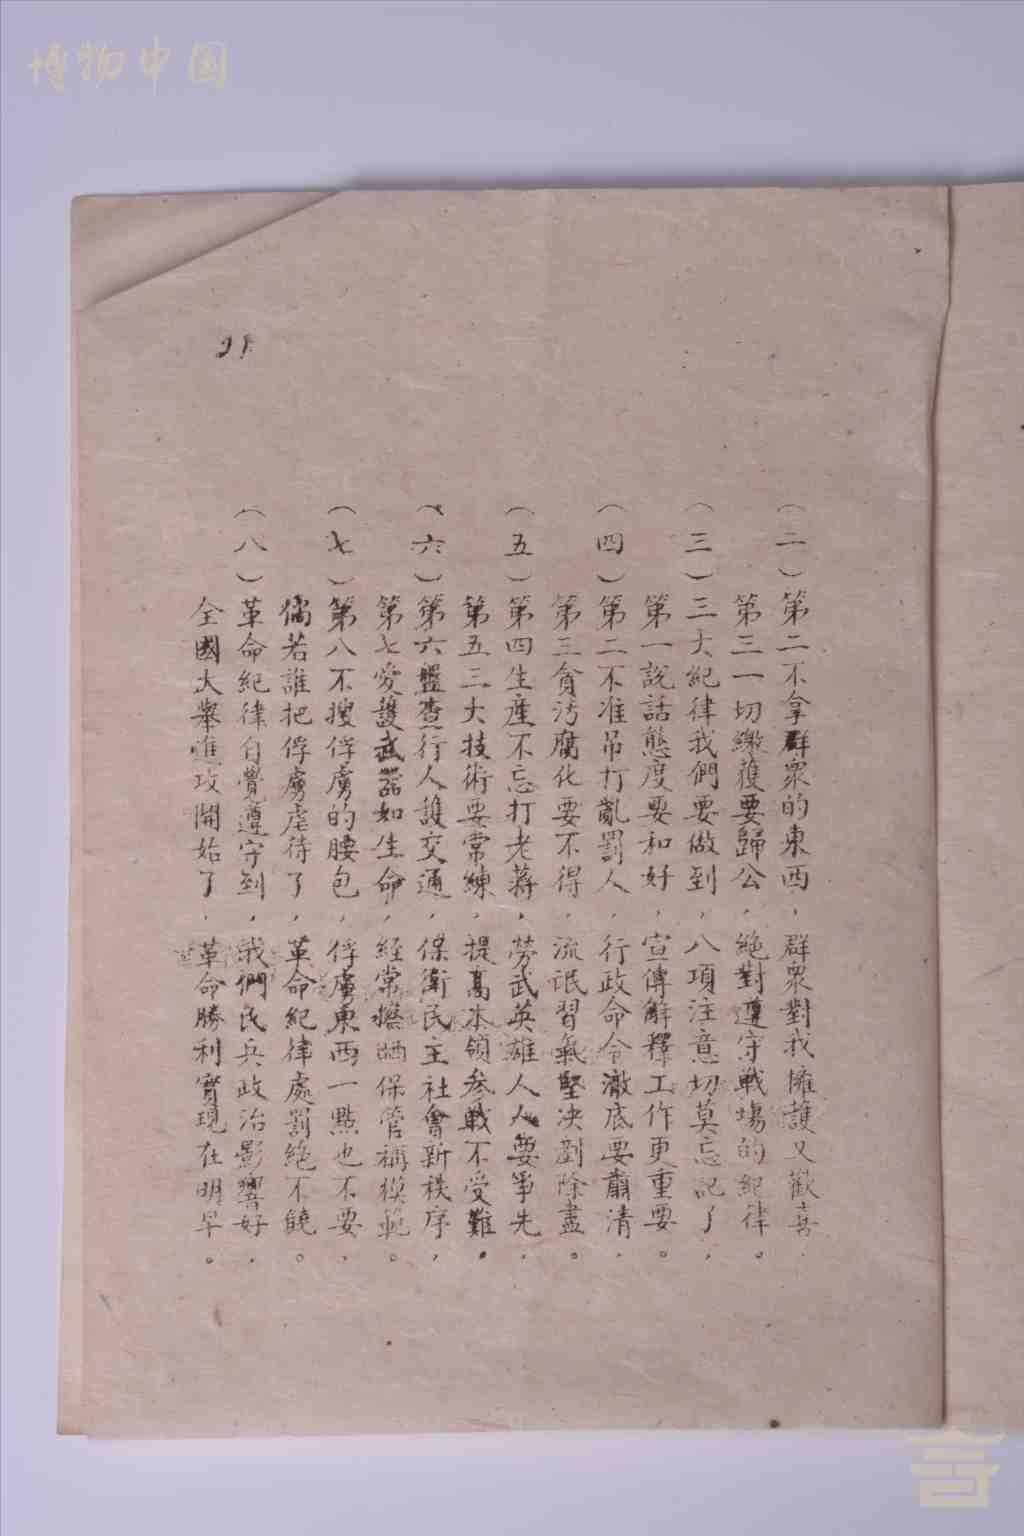 博物中国
(二)第二不拿群衆的東西，群衆對我擁護又歡喜．
第三一切繳獲要歸公，絕對遵守戰場的紀律。
(三)三大紀律我們要做到，八項注意切莫忘記了，
第一說話態度要和好，宣傳解釋工作更重要。
(四)第二不准吊打亂罰人，行政命令澈底要肅清，
第三貪污腐化要不得，流氓習氣堅決剷除盡。
(五)第四生產不忘打老蔣，勞武英雄人人要爭先，
第五三大技術要常練，提高本領參戰不受難。
(六)第六盤查行人護交通，保衛民主社會新秩序，
第七愛護武器如生命，經常擦晒保管稱模範。
(七)第八不搜俘虜的腰包，俘虜東西一點也不要，
倘若誰把俘虜虐待了，革命紀律處罰絕不饒。
(八)革命紀律自覺遵守到，我們民兵政治影響好，
全國大舉進攻開始了，革命勝利實現在明早。